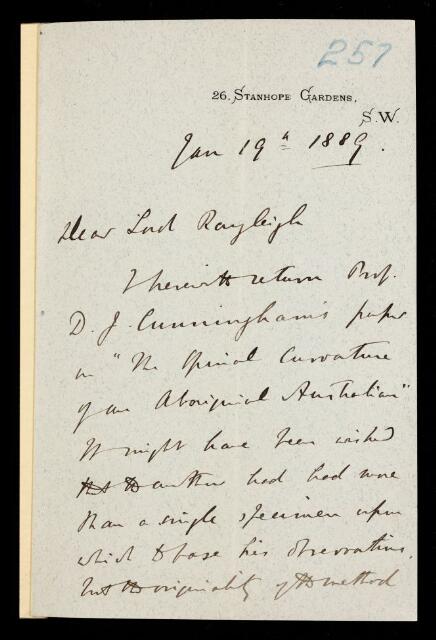 257
26, Stanhope Gardens,
S.W.
Jan 19th 1889.
Dear Lord Rayleigh
I herewith return Prof.
D. J. Cunningham's paper
on "The Spinal Curvature
of an Aboriginal Australian"
It might have been wished
that the author had had more
than a single specimen upon
which to base his observations,
but the originality of the method